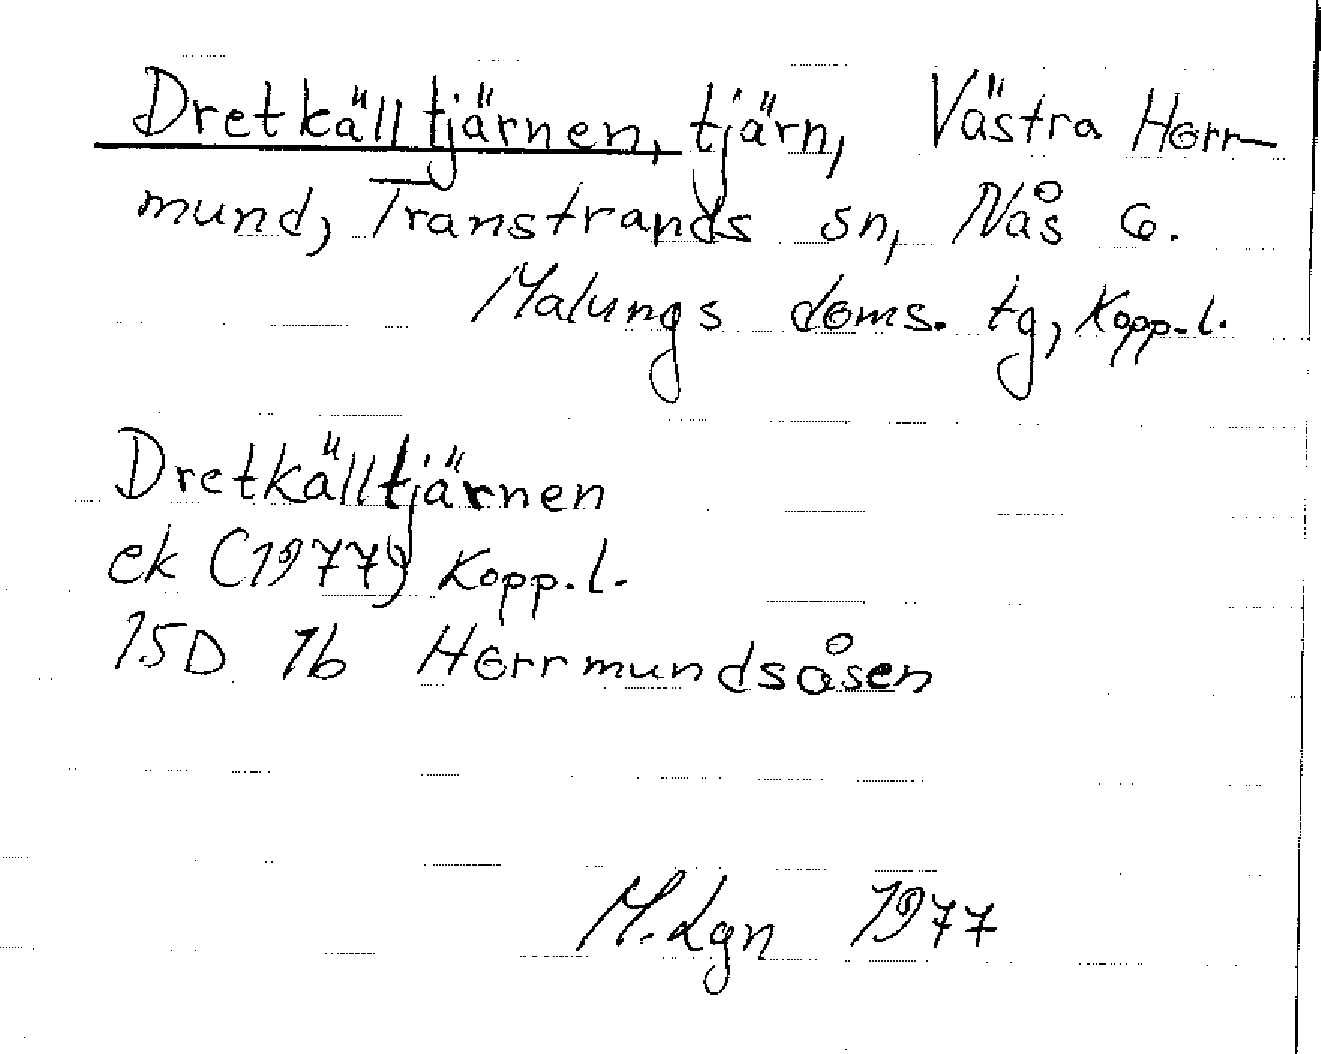 Dretkälltjärnen, tjärn, Västra Horr-
mund, Transtrands sn, Nås o.
Malungs doms. tg, Kopp.l.
Dretkälltjärnen
ek (1977) Kopp.l.
15D 1b Horrmundsåsen
M.Lgn 1977